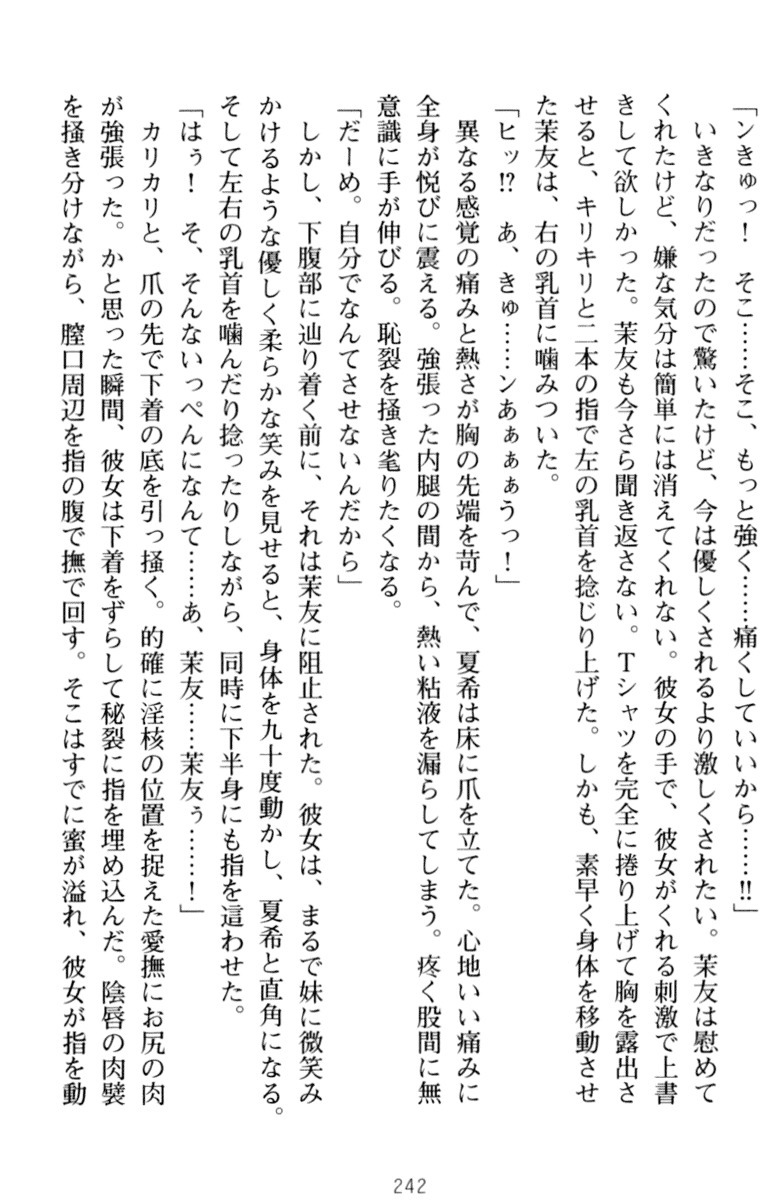 「ンきゅっ！　そこ……そこ、もっと強く……痛くしていいから……!!」
いきなりだったので驚いたけど、今は優しくされるより激しくされたい。茉友は慰めて
くれたけど、嫌な気分は簡単には消えてくれない。彼女の手で、彼女がくれる刺激で上書
きして欲しかった。茉友も今さら聞き返さない。Tシャツを完全に捲り上げて胸を露出さ
せると、キリキリと二本の指で左の乳首を捻じり上げた。しかも、素早く身体を移動させ
た茉友は、右の乳首に噛みついた。
「ヒッ!?　あ、きゅ……ンあぁぁぁうっ！」
異なる感覚の痛みと熱さが胸の先端を苛んで、夏希は床に爪を立てた。心地いい痛みに
全身が悦びに震える。強張った内腿の間から、熱い粘液を漏らしてしまう。疼く股間に無
意識に手が伸びる。恥裂を掻き毟りたくなる。
「だーめ。自分でなんてさせないんだから」
しかし、下腹部に辿り着く前に、それは茉友に阻止された。彼女は、まるで妹に微笑み
かけるような優しく柔らかな笑みを見せると、身体を九十度動かし、夏希と直角になる。
そして左右の乳首を噛んだり捻ったりしながら、同時に下半身にも指を這わせた。
「はぅ！　そ、そんないっぺんになんて……あ、茉友……茉友ぅ……！」
カリカリと、爪の先で下着の底を引っ掻く。的確に淫核の位置を捉えた愛撫にお尻の肉
が強張った。かと思った瞬間、彼女は下着をずらして秘裂に指を埋め込んだ。陰唇の肉襞
を掻き分けながら、膣口周辺を指の腹で撫で回す。そこはすでに蜜が溢れ、彼女が指を動
242